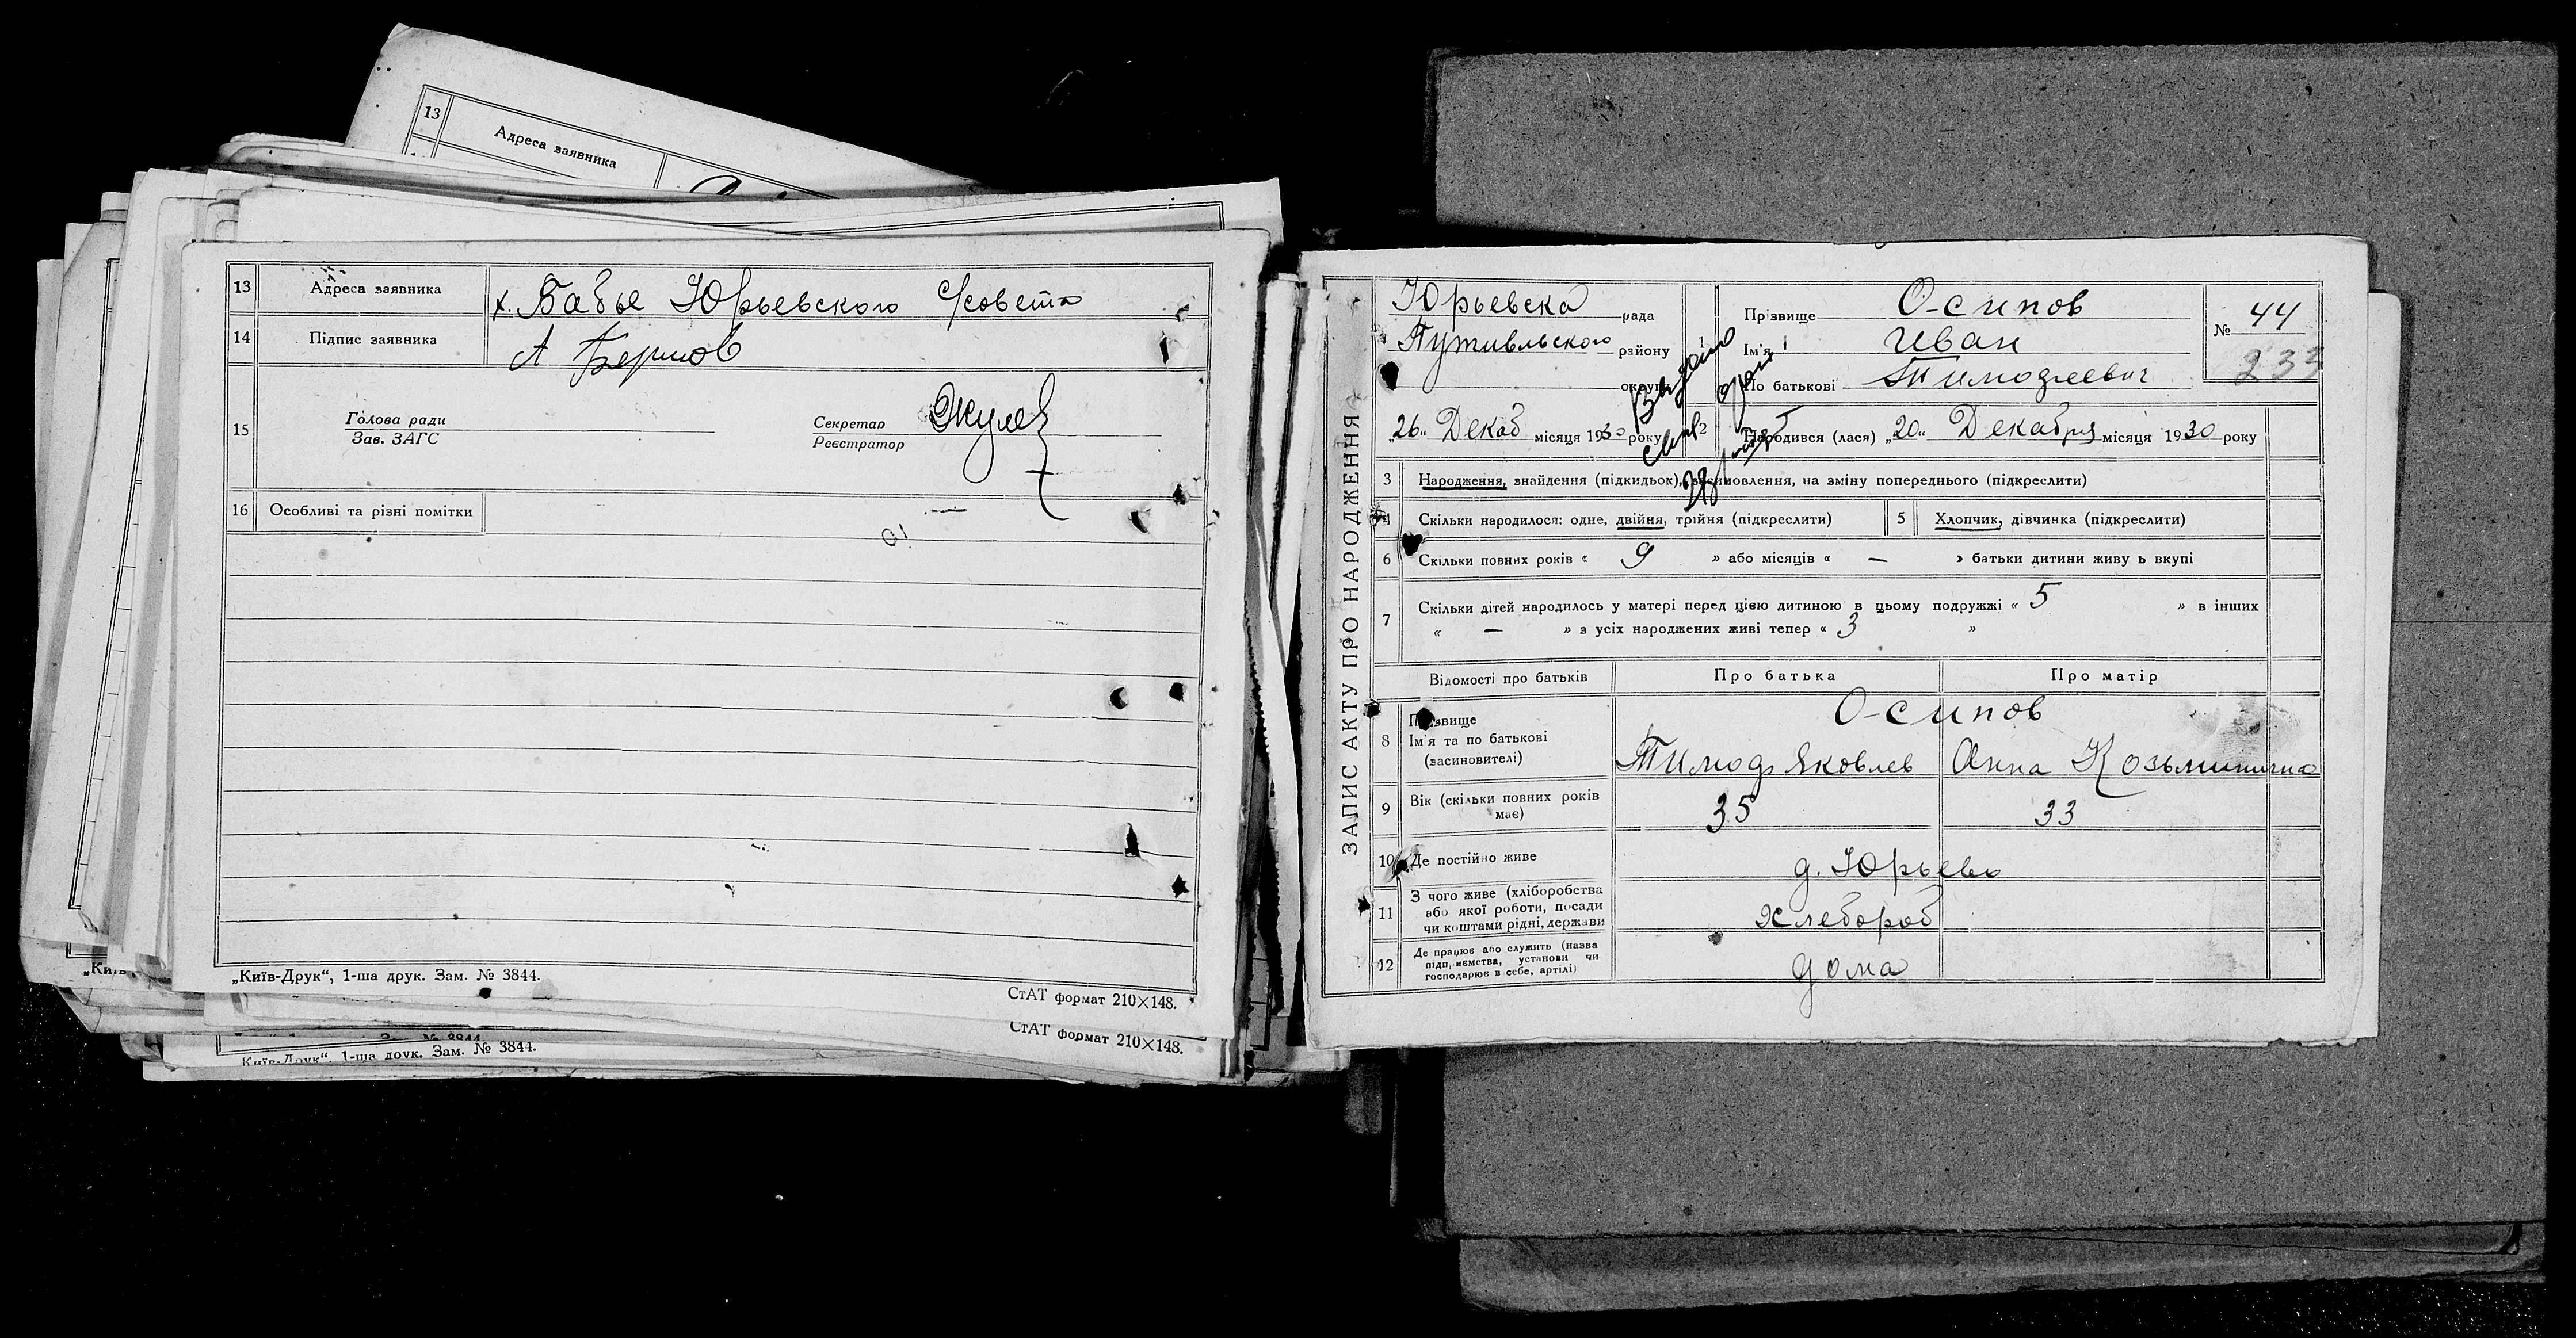 13 Адреса заявника
13 Адреса заявника х. Бабье Юрьевского С/совета
14 Підпис заявника А
15 Голова ради
Зав. ЗАГС
Секретар
Реєстратор
16 Особливі та різні помітки —
„Київ-Друк“, 1-ша друк. Зам. № 3844.
СтАТ формат 210×148.
СтАТ формат 210×148.
Київ-Друк“, 1-ша друк. Зам. № 3844.
ЗАПИС АКТУ ПРО НАРОДЖЕННЯ
Юрьевска рада
Путивльского району
округи
„26“ Декаб місяця 1930 року
Видано
1 Прізвище Осипов
Ім'я Иван
По батькові Тимофеевич
№ 44
233
2 Народився (лася) „20“ Декабря місяця 1930 року
3 Народження, знайдення (підкидьок), всиновлення, на зміну попереднього (підкреслити)
4 Скільки народилося: одне, двійня, трійня (підкреслити) 5 Хлопчик, дівчинка (підкреслити)
6 Скільки повних років « 9 » або місяців « — » батьки дитини живу ь вкупі
7 Скільки дітей народилось у матері перед цією дитиною в цьому подружжі « 5 » в інших
« — » з усіх народжених живі тепер « 3 »
Відомості про батьків Про батька Про матір
8 Прізвище Осипов
Ім'я та по батькові
(засиновителі) Тимоф Яковлев Анна Козьминична
9 Вік (скільки повних років має) 35 33
10 Де постійно живе д. Юрьево
11 З чого живе (хліборобства
або якої роботи, посади
чи коштами рідні, держави Хлебороб
12 Де працює або служить (назва
підприємства, установи чи
господарює в себе, артілі) дома